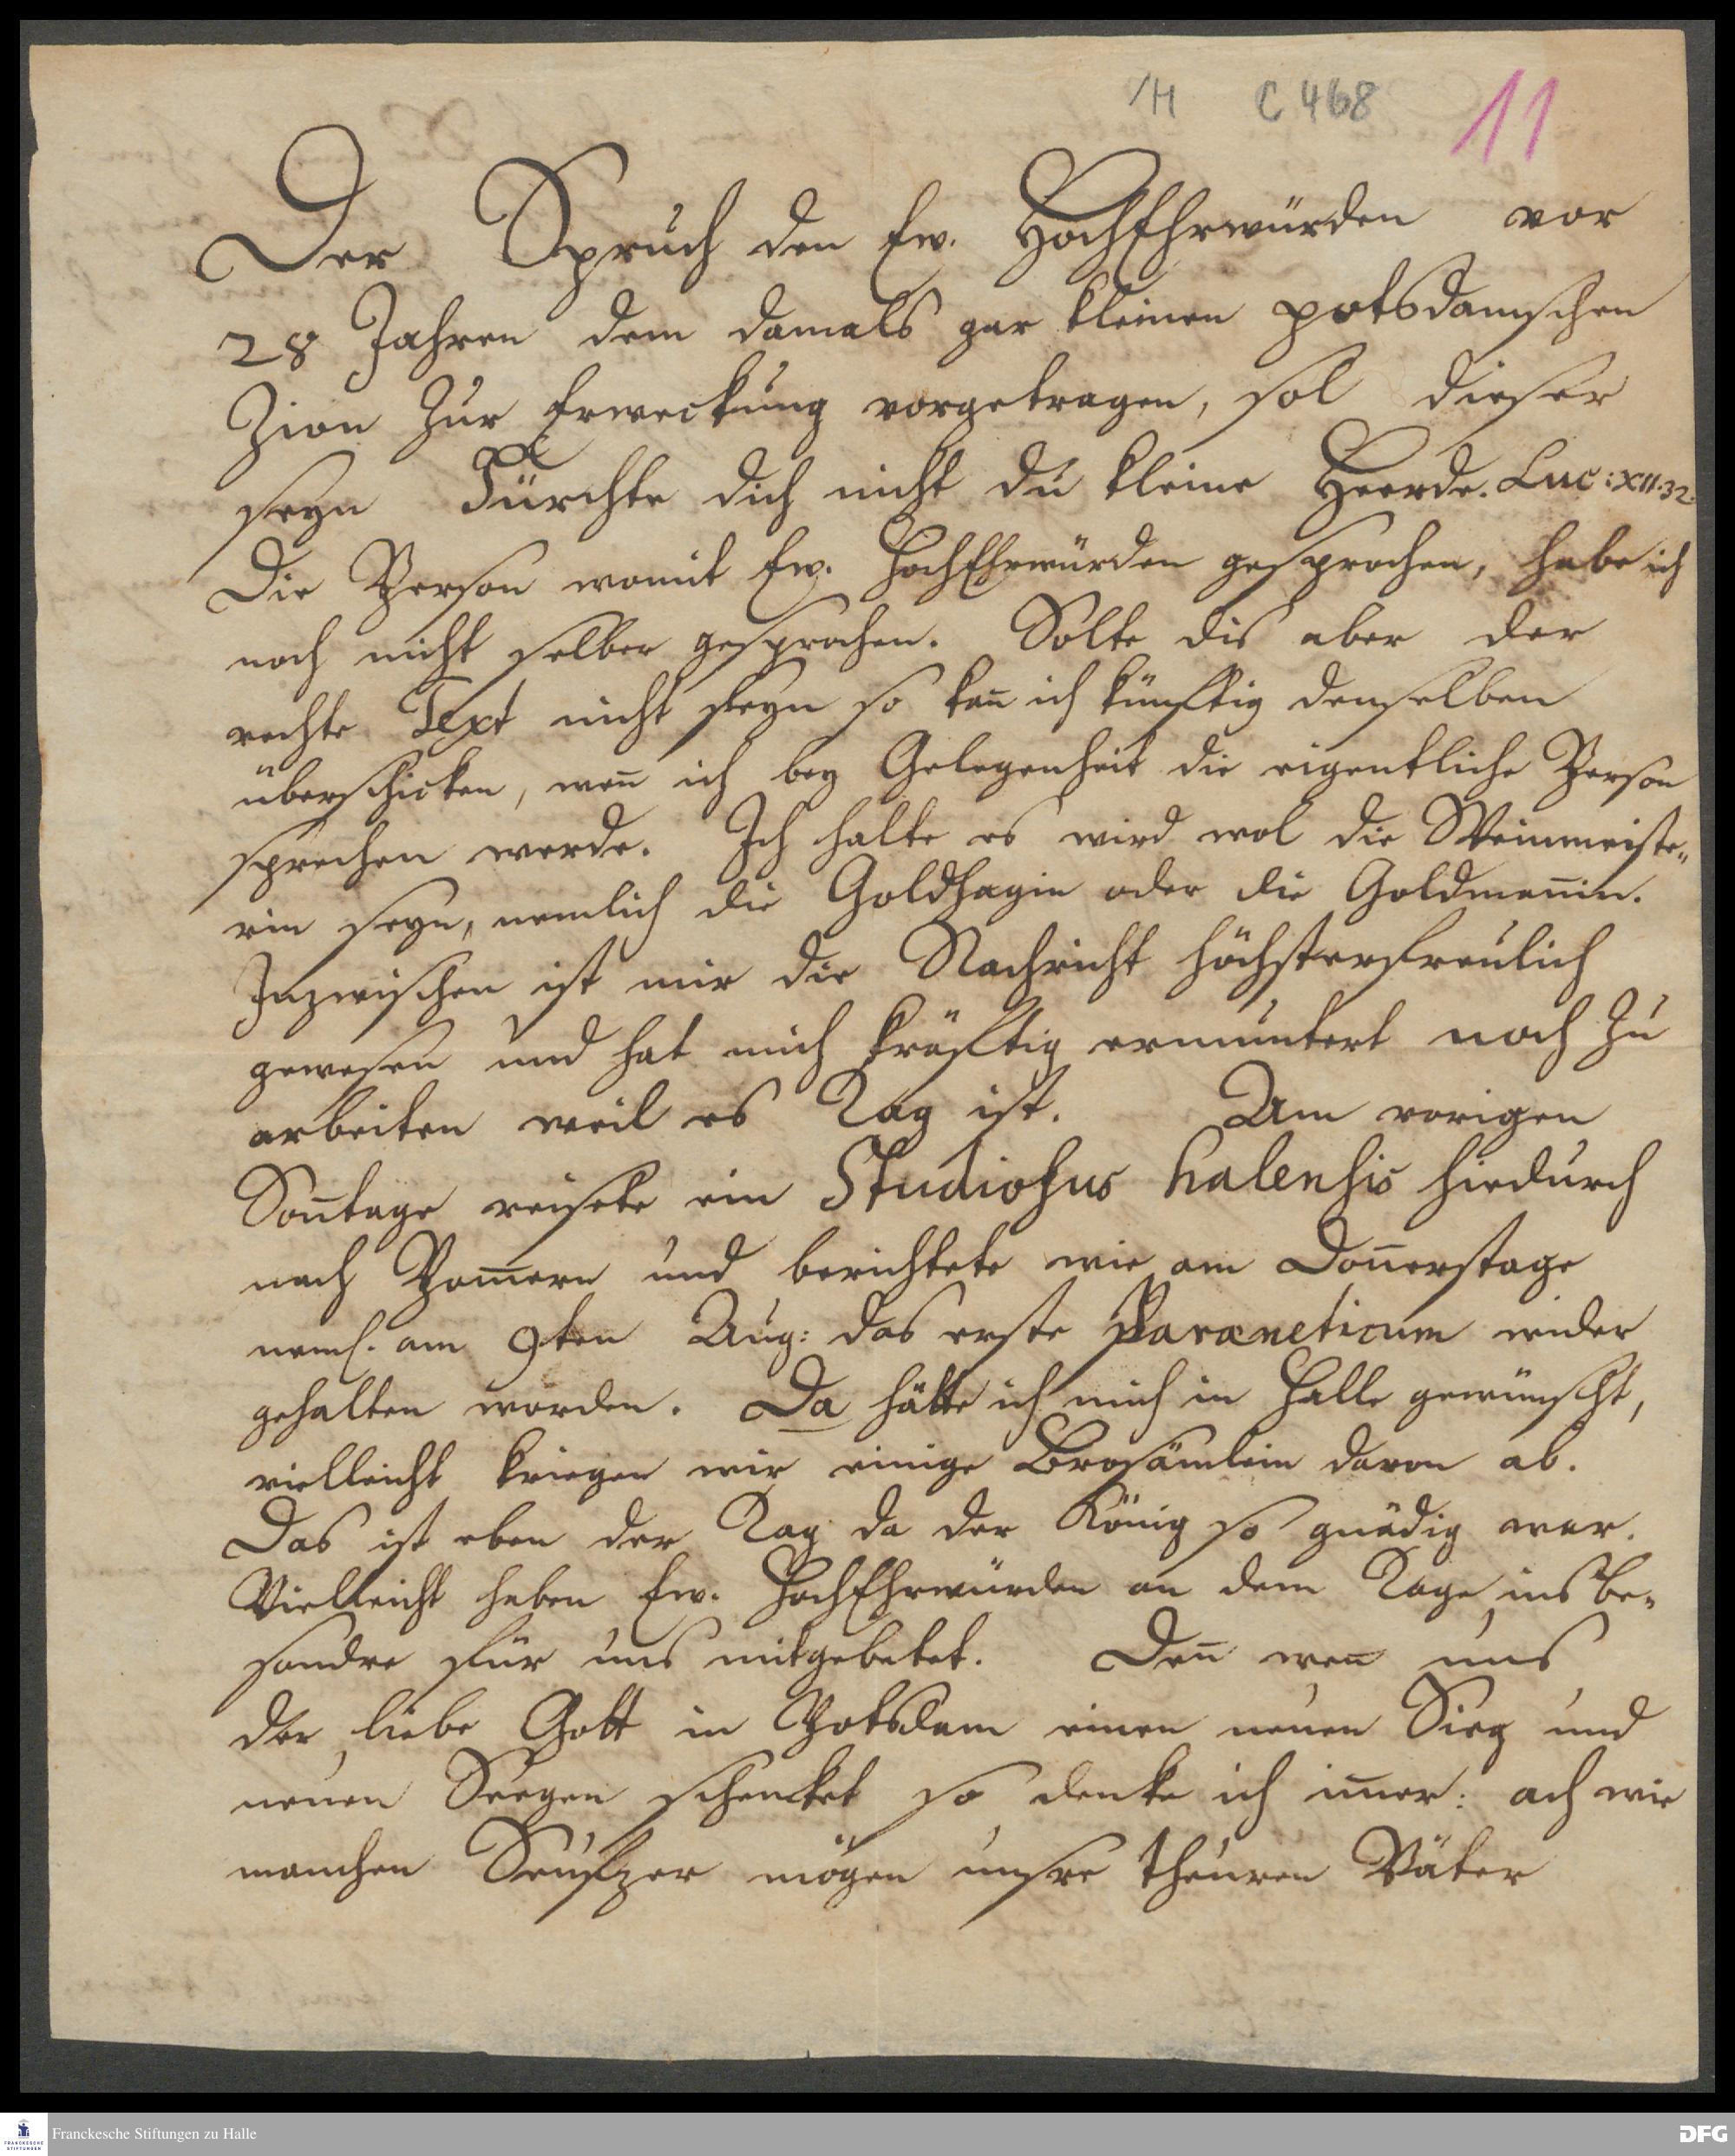 /H C 468 11
Der Spruch den Ew. HochEhrwürden vor
28 Jahren dem damals gar kleinen potsdamschen
Zion zur Erweckung vorgetragen, sol dieser
seyn Fürchte dich nicht du kleine Heerde. Luc: XII. 32.
Die Person womit Ew. HochEhrwürden gesprochen, habe ich
noch nicht selber gesprochen. Solte dis aber der
rechte Text nicht seyn so kan̄ ich künftig denselben
überschicken, wen̄ ich bey Gelegenheit die eigentliche Person
sprechen werde. Ich halte es wird wol die Weinmeiste„
rin seyn, nemlich die Goldhagin oder die Goldman̄in.
Inzwischen ist mir die Nachricht höchsterfreulich
gewesen und hat mich kräftig ermuntert noch zu
arbeiten weil es Tag ist. Am vorigen
Son̄tage reisete ein Studiosus halensis hiedurch
nach Pom̄ern und berichtete wie am Don̄erstage
neml. am 9ten Aug: das erste Paraeneticum wider
gehalten worden. Da hätte ich mich in Halle gewünscht,
vielleicht kriegen wir einige Brosämlein davon ab.
Das ist eben der Tag da der König so gnädig war.
Vielleicht haben Ew. HochEhrwürden an dem Tage insbe„
sondre für uns mitgebetet. Den̄ wen̄ uns
der liebe Gott in Potsdam einen neuen Sieg und
neuen Seegen schencket so denke ich im̄er: ach wie
manchen Seufzer mögen unsre theuren Väter
FRANCKESCHE STIFTUNGEN
Franckesche Stiftungen zu Halle
DFG